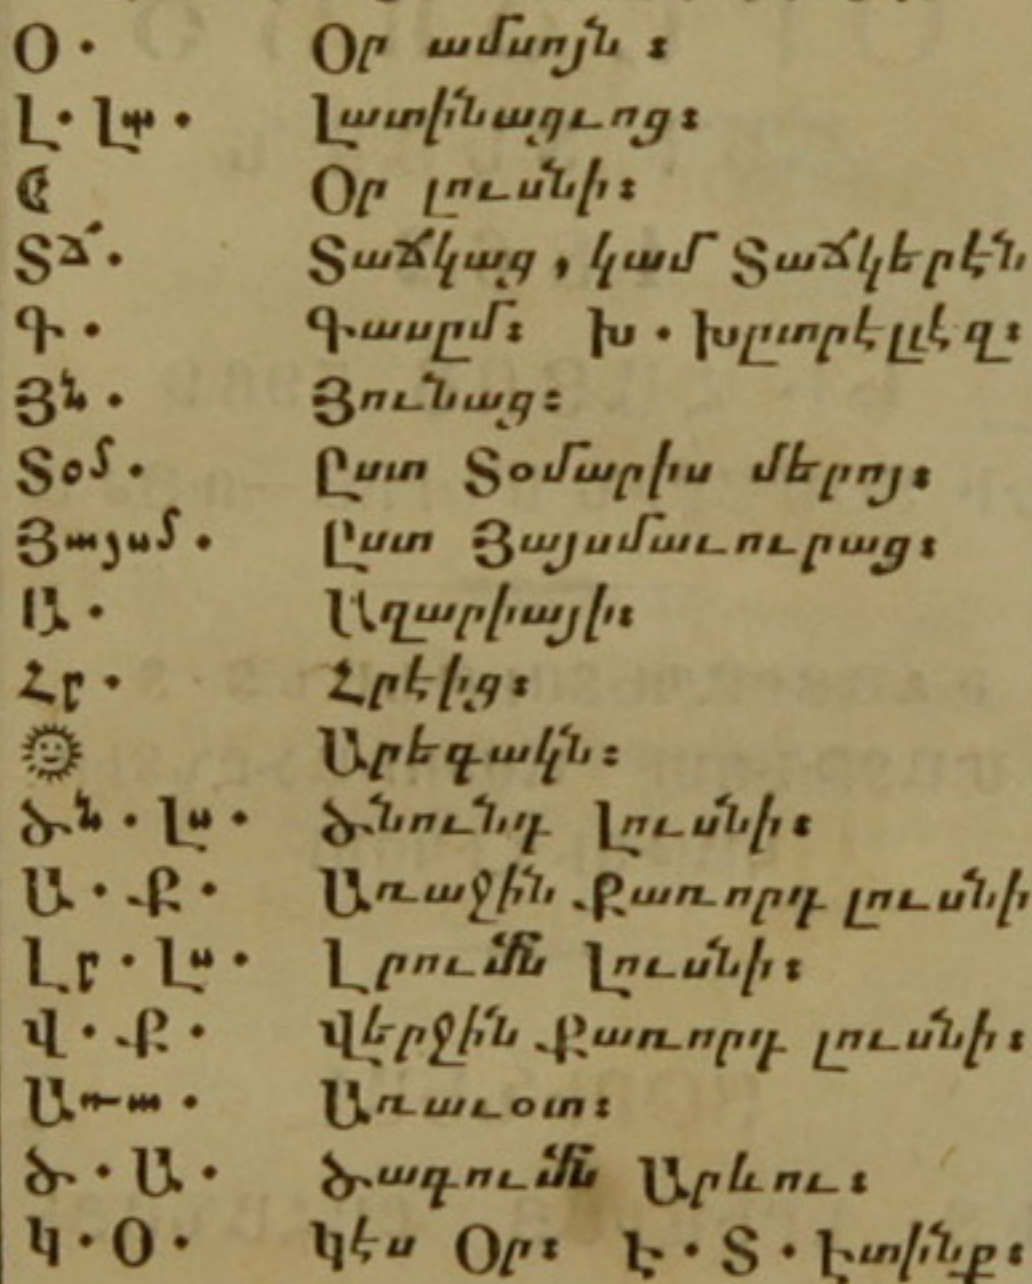 Օ․ Օր ամսոյն ։
Լ․ Լտ․ Լատինացւոց։
☾ Օր լուսնի։
Տճ․ Տաճկաց , կամ Տաճկերէն
Գ․ Գասըմ։ Խ․ Խըտրէլլէզ։
Յն․ Յունաց։
Տօմ․ Ըստ Տօմարիս մերոյ։
Յայսմ․ Ըստ Յայսմաւուրաց։
Ա․ Ազարիայի։
Հր․ Հրէից։
☼ Արեգական։
Ծն․ Լս․ Ծնունդ Լուսնի։
Ա․ Ք․ Առաջին Քառորդ լուսնի
Լր․ Լս․ Լրումն Լուսնի։
Վ․ Ք․ Վերջին Քառորդ լուսնի։
Առտ․ Առաւօտ։
Ծ․ Ա․ Ծագումն Արևու։
Կ․ Օ․ Կէս Օր։ Է․ Տ․ Էտինք։